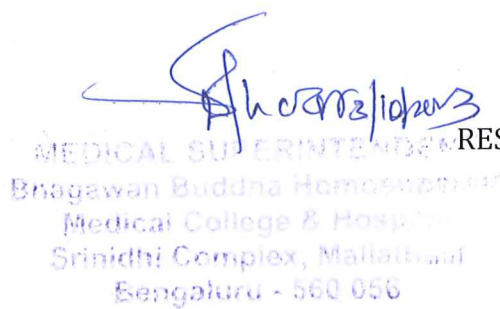 RES
MEDICAL SUPERINTENDENT
Bhagawan Buddha Homoeopathic
Medical College & Hospital
Srinidhi Complex,
Bengaluru - 560 056